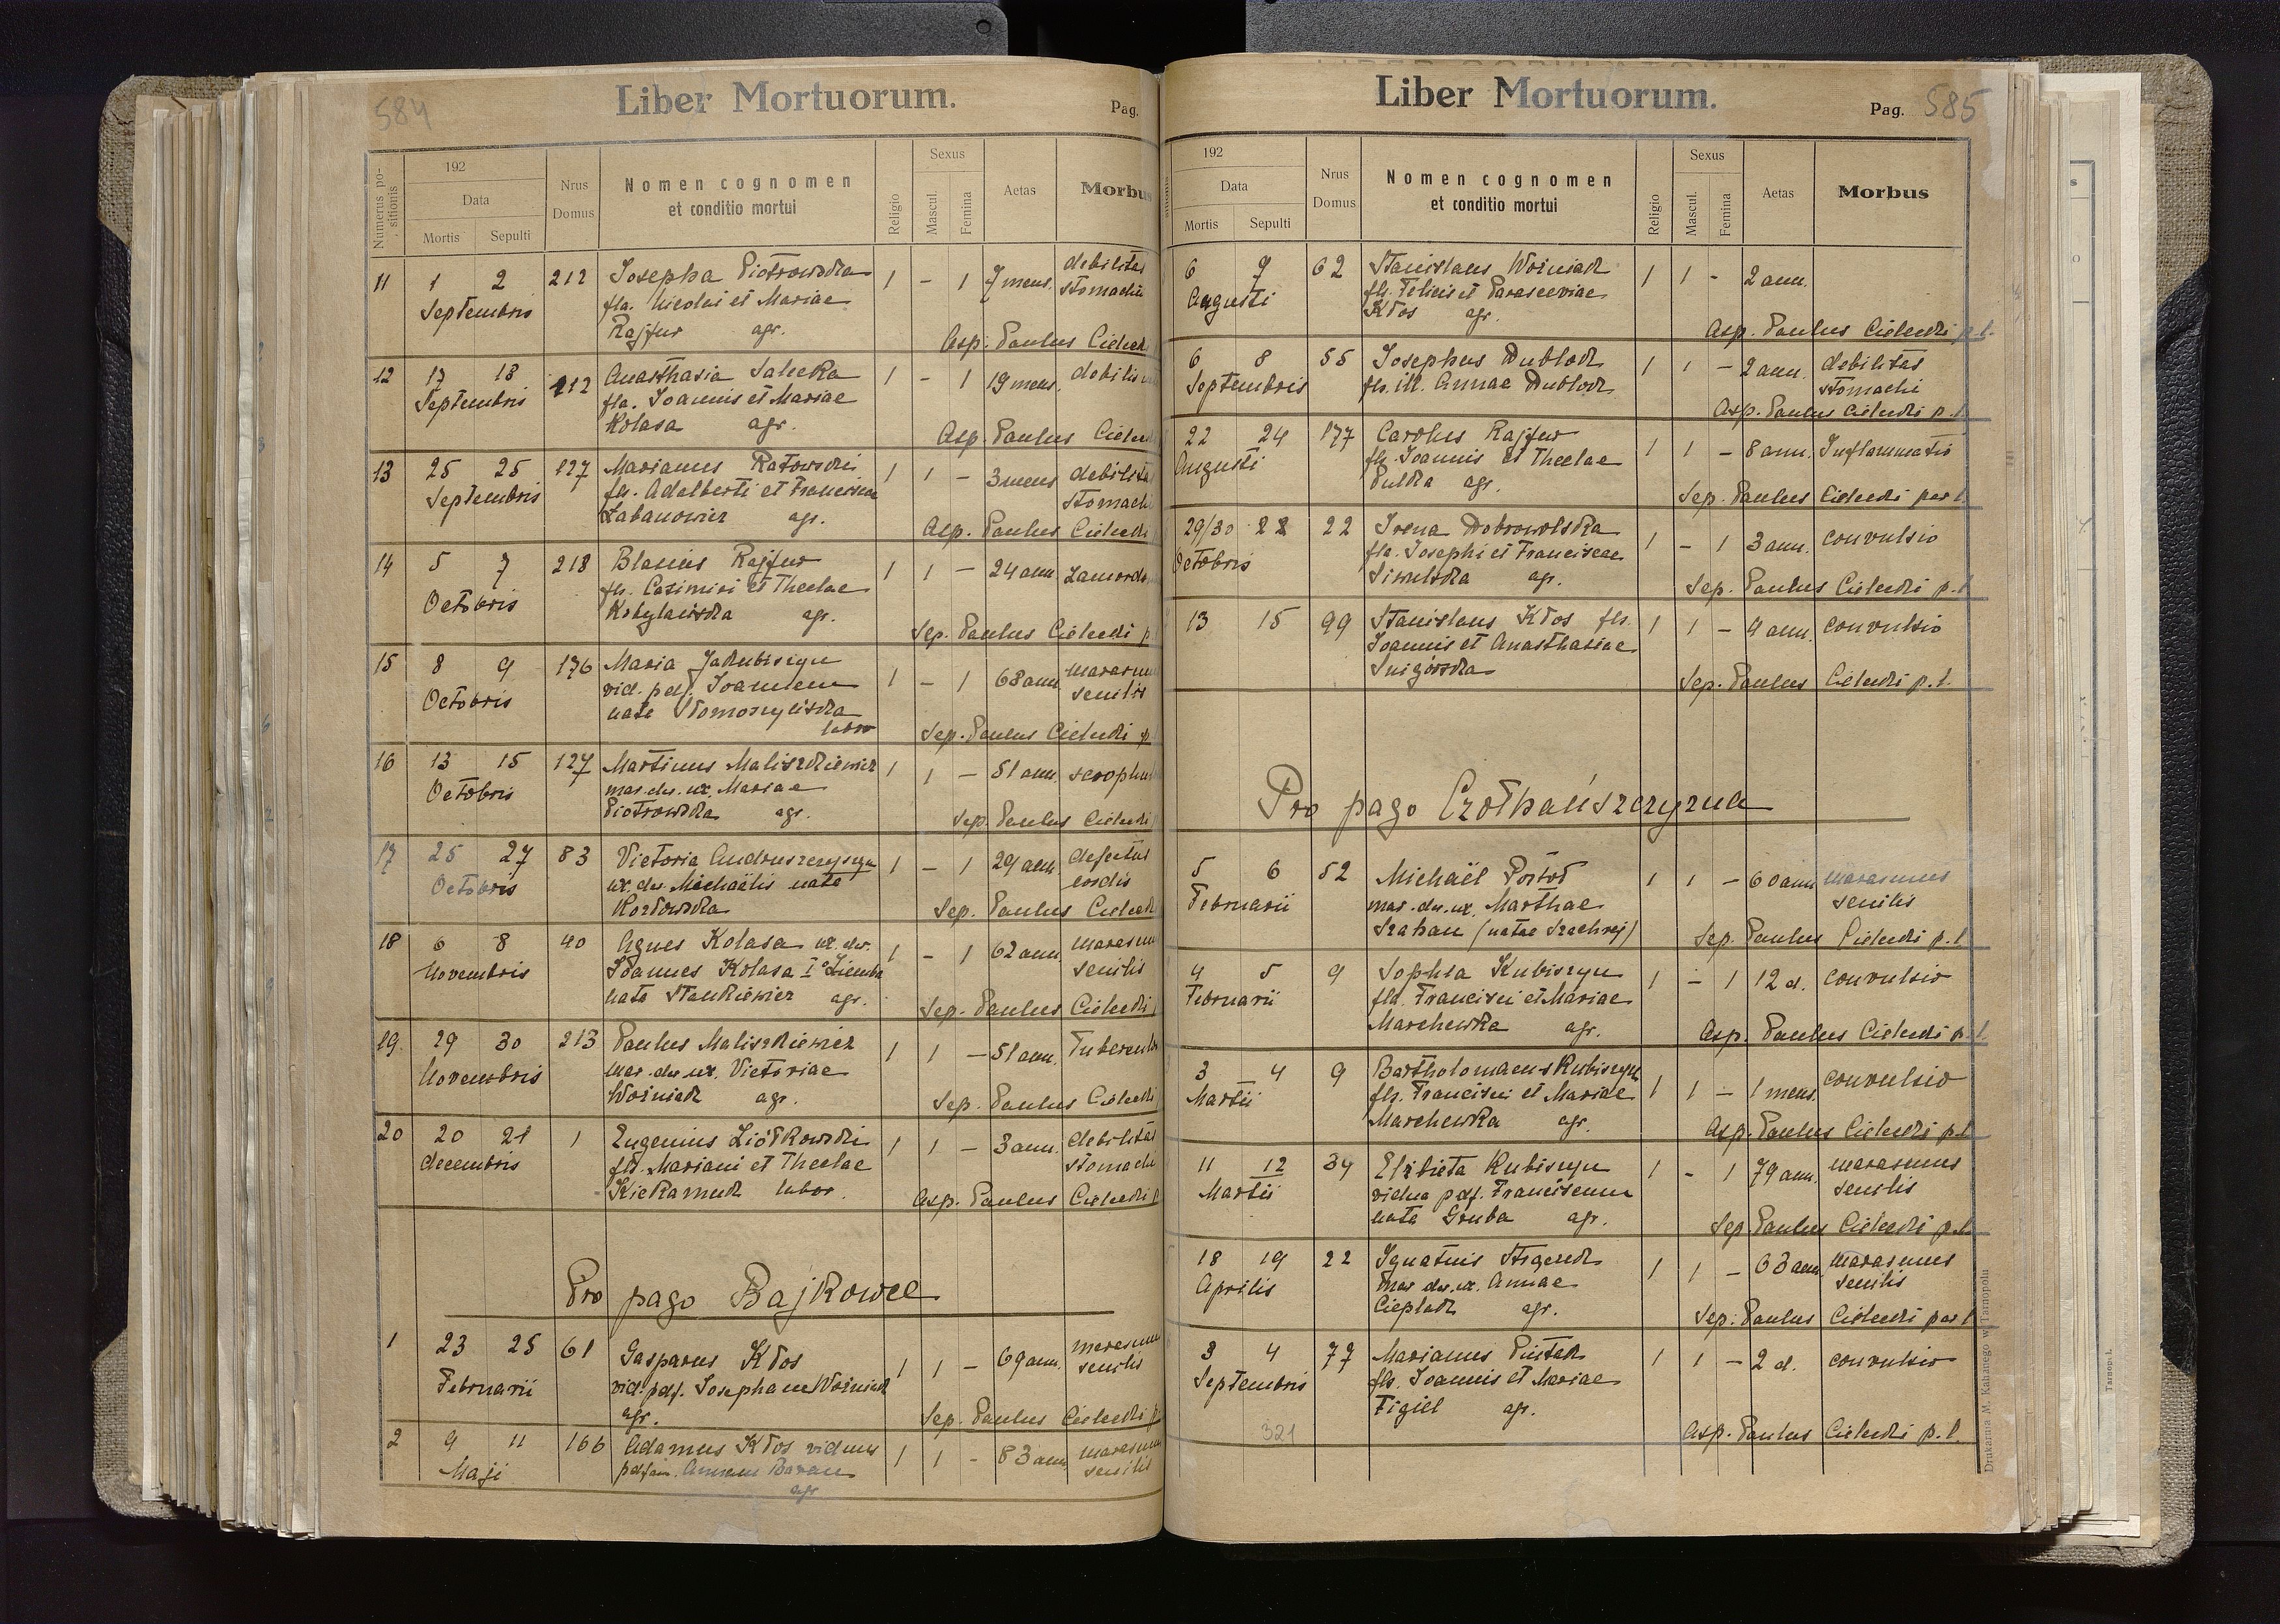 584
Liber Mortuorum.
Pag.
Numerus positionis
192
Data
Mortis Sepulti
Nrus Domus
Nomen cognomen
et conditio mortui
Religio
Sexus
Mascul. Femina
Aetas
Morbus
11 1 2 212 Josepha Piotrowska 1 - 1 7 mens. debilitas
Septembris fla. Nicolai et Mariae stomachi
Rajfur agr. Asp. Paulus
12 17 18 212 Anasthasia Salecka 1 - 1 19 mens.
Septembris fla. Joannis et Mariae
Kolasa agr. Asp. Paulus
13 25 25 127 Marianus Ratowski 1 1 - 3 mens
Septembris fls. Adalberti et Franciscae stomachi
Łabanowicz agr. Asp. Paulus Ciełecki
14 5 7 218 Blasius Rajfur 1 1 - 24 ann.
Octobris fls. Casimiri et Theclae
Kobylańska agr. Sep. Paulus Ciełecki p.
15 8 9 176 Maria Jakubiszyn 1 - 1 68 ann.
Octobris vid. pdf. Joannem senilis
nata
Sep. Paulus Ciełecki p.
16 13 15 127 Martinus Maliszkiewicz 1 1 - 51 ann.
Octobris mar. der. ux. Mariae
Piotrowska agr. Sep. Paulus Ciełecki
17 25 27 83 Victoria Andruszczyszyn 1 - 1 29 ann defectus
Octobris ux. der. Michaëlis nata cordis
Kozłowska Sep. Paulus
18 6 8 40 Agnes Kolasa ux. der. 1 - 1 62 ann.
Novembris Joannes Kolasa senilis
nata Stankiewicz agr. Sep. Paulus Ciełecki
19. 29 30 213 Paulus Maliszkiewicz 1 1 - 51 ann.
Novembris mar. der ux. Victoriae
Woźniak agr. Sep. Paulus Ciełecki
20 20 21 1 Eugenius Ziółkowski 1 1 - 3 ann. debilitas
decembris fls. Mariani et Theclae stomachi
Kiekamuk labor. Asp. Paulus Ciełecki
Pro pago Bajkowce
1 23 25 61 Gasparus Kłos 1 1 - 69 ann.
Februarii vid. pdf. Josepham Woźniak senilis
agr. Sep. Paulus Ciełecki p.
2 9 11 166 Adamus Kłos viduus 1 1 - 83 ann.
Maji Annam Baran senilis
agr
Liber Mortuorum.
Pag. 585
192
Data
Mortis Sepulti
Nrus Domus
Nomen cognomen
et conditio mortui
Religio
Sexus
Mascul. Femina
Aetas
Morbus
6 7 62 Stanislaus Woźniak 1 1 - 2 ann.
Augusti fls. Felicis et Parasceviae
Kłos agr. Asp. Paulus Ciełecki p. l.
6 8 55 Josephus Dubłok 1 1 - 2 ann. debilitas
Septembris fls. ill. Annae Dubłok stomachi
Asp. Paulus Ciełecki p. l.
22 24 177 Carolus Rajfur 1 1 - 8 ann. Inflammatio
Augusti fls. Joannis et Theclae
Pulka agr. Sep. Paulus Ciełecki par l.
29/30 22 Irena Dobrowolska 1 - 1 3 ann. convulsio
Octobris fla. Josephi et Franciscae
agr. Sep. Paulus Ciełecki p. l
13 15 99 Stanislaus Kłos fls. 1 1 - 4 ann. convulsio
Joannis et Anasthasiae
Snigórska Sep. Paulus Ciełecki p. l.
Pro pago Czołhańszczyzna
5 6 52 Michaël Portoł 1 1 - 60 ann marasmus
Februarii mar. der. ux. Marthae senilis
Szaban (natae Szachraj) Sep. Paulus Ciełecki p. l
4 5 9 Sophia Kubiszyn 1 - 1 12 d. convulsio
Februarii fla. Francisci et Mariae
Marchewka agr. Asp. Paulus Ciełecki p. l.
3 4 9 Bartholomaeus Kubiszyn 1 1 - 1 mens. convulsio
Martii fls. Francisci et Mariae
Marchewka agr. Asp. Paulus Ciełecki p. l
11 12 34 Elżbieta Kubiszyn 1 - 1 79 ann. marasmus
Martii vidua pdf. Franciscum senilis
nata Gruba agr. Sep. Paulus Ciełecki p. l.
18 19 22 Ignatius 1 1 - 63 ann. marasmus
Aprilis mar der. ux. Annae senilis
Cieplak agr. Sep. Paulus Ciełecki par l
3 4 77 Marianus Pustak 1 1 - 2 d. convulsio
Septembris fls. Joannis et Mariae
Figiel agr.
321 Asp. Paulus Ciełecki p. l.
Drukarnia M. Kahanego w Tarnopolu
Tarnopol.